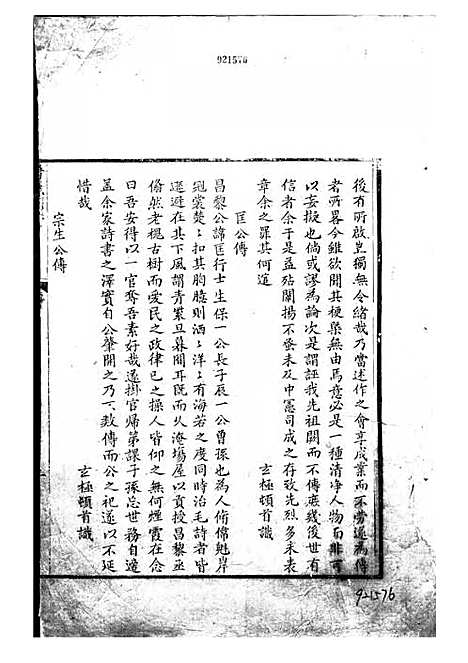 921576
後有所啟豈獨無令緒哉乃當述作之會享成業而不勞遂為傳
者所畧今雖欲聞其梗槩無由焉意必是一種清淨人物而非可
以妄擬也倘或謬為論次是謂誣我先祖闕而不傳庶幾後世有
信者余于是益殆闕揚不蚤未及中憲司成之存致先烈多未表
章余之罪其何逭
玄極頓首識
匡公傳
昌黎公諱匡行士生保一公長子辰一公曽孫也為人脩偉魁岸
冠裳楚〻扣其胸臆則洒〻洋〻有海若之度同時治毛詩者皆
遜避在其下風謂青紫旦暮間耳既而久淹場屋以貢授昌黎丞
翛然老槐古樹而愛民之政律已之操人皆仰之無何煙霞在念
曰吾安得以一官奪吾素好哉遂掛官帰第課子孫忘世務自適
葢余家詩書之澤實自公肇開之乃不数傳而公之祀遂以不延
惜哉
玄極頓首識
宗生公傳
921576